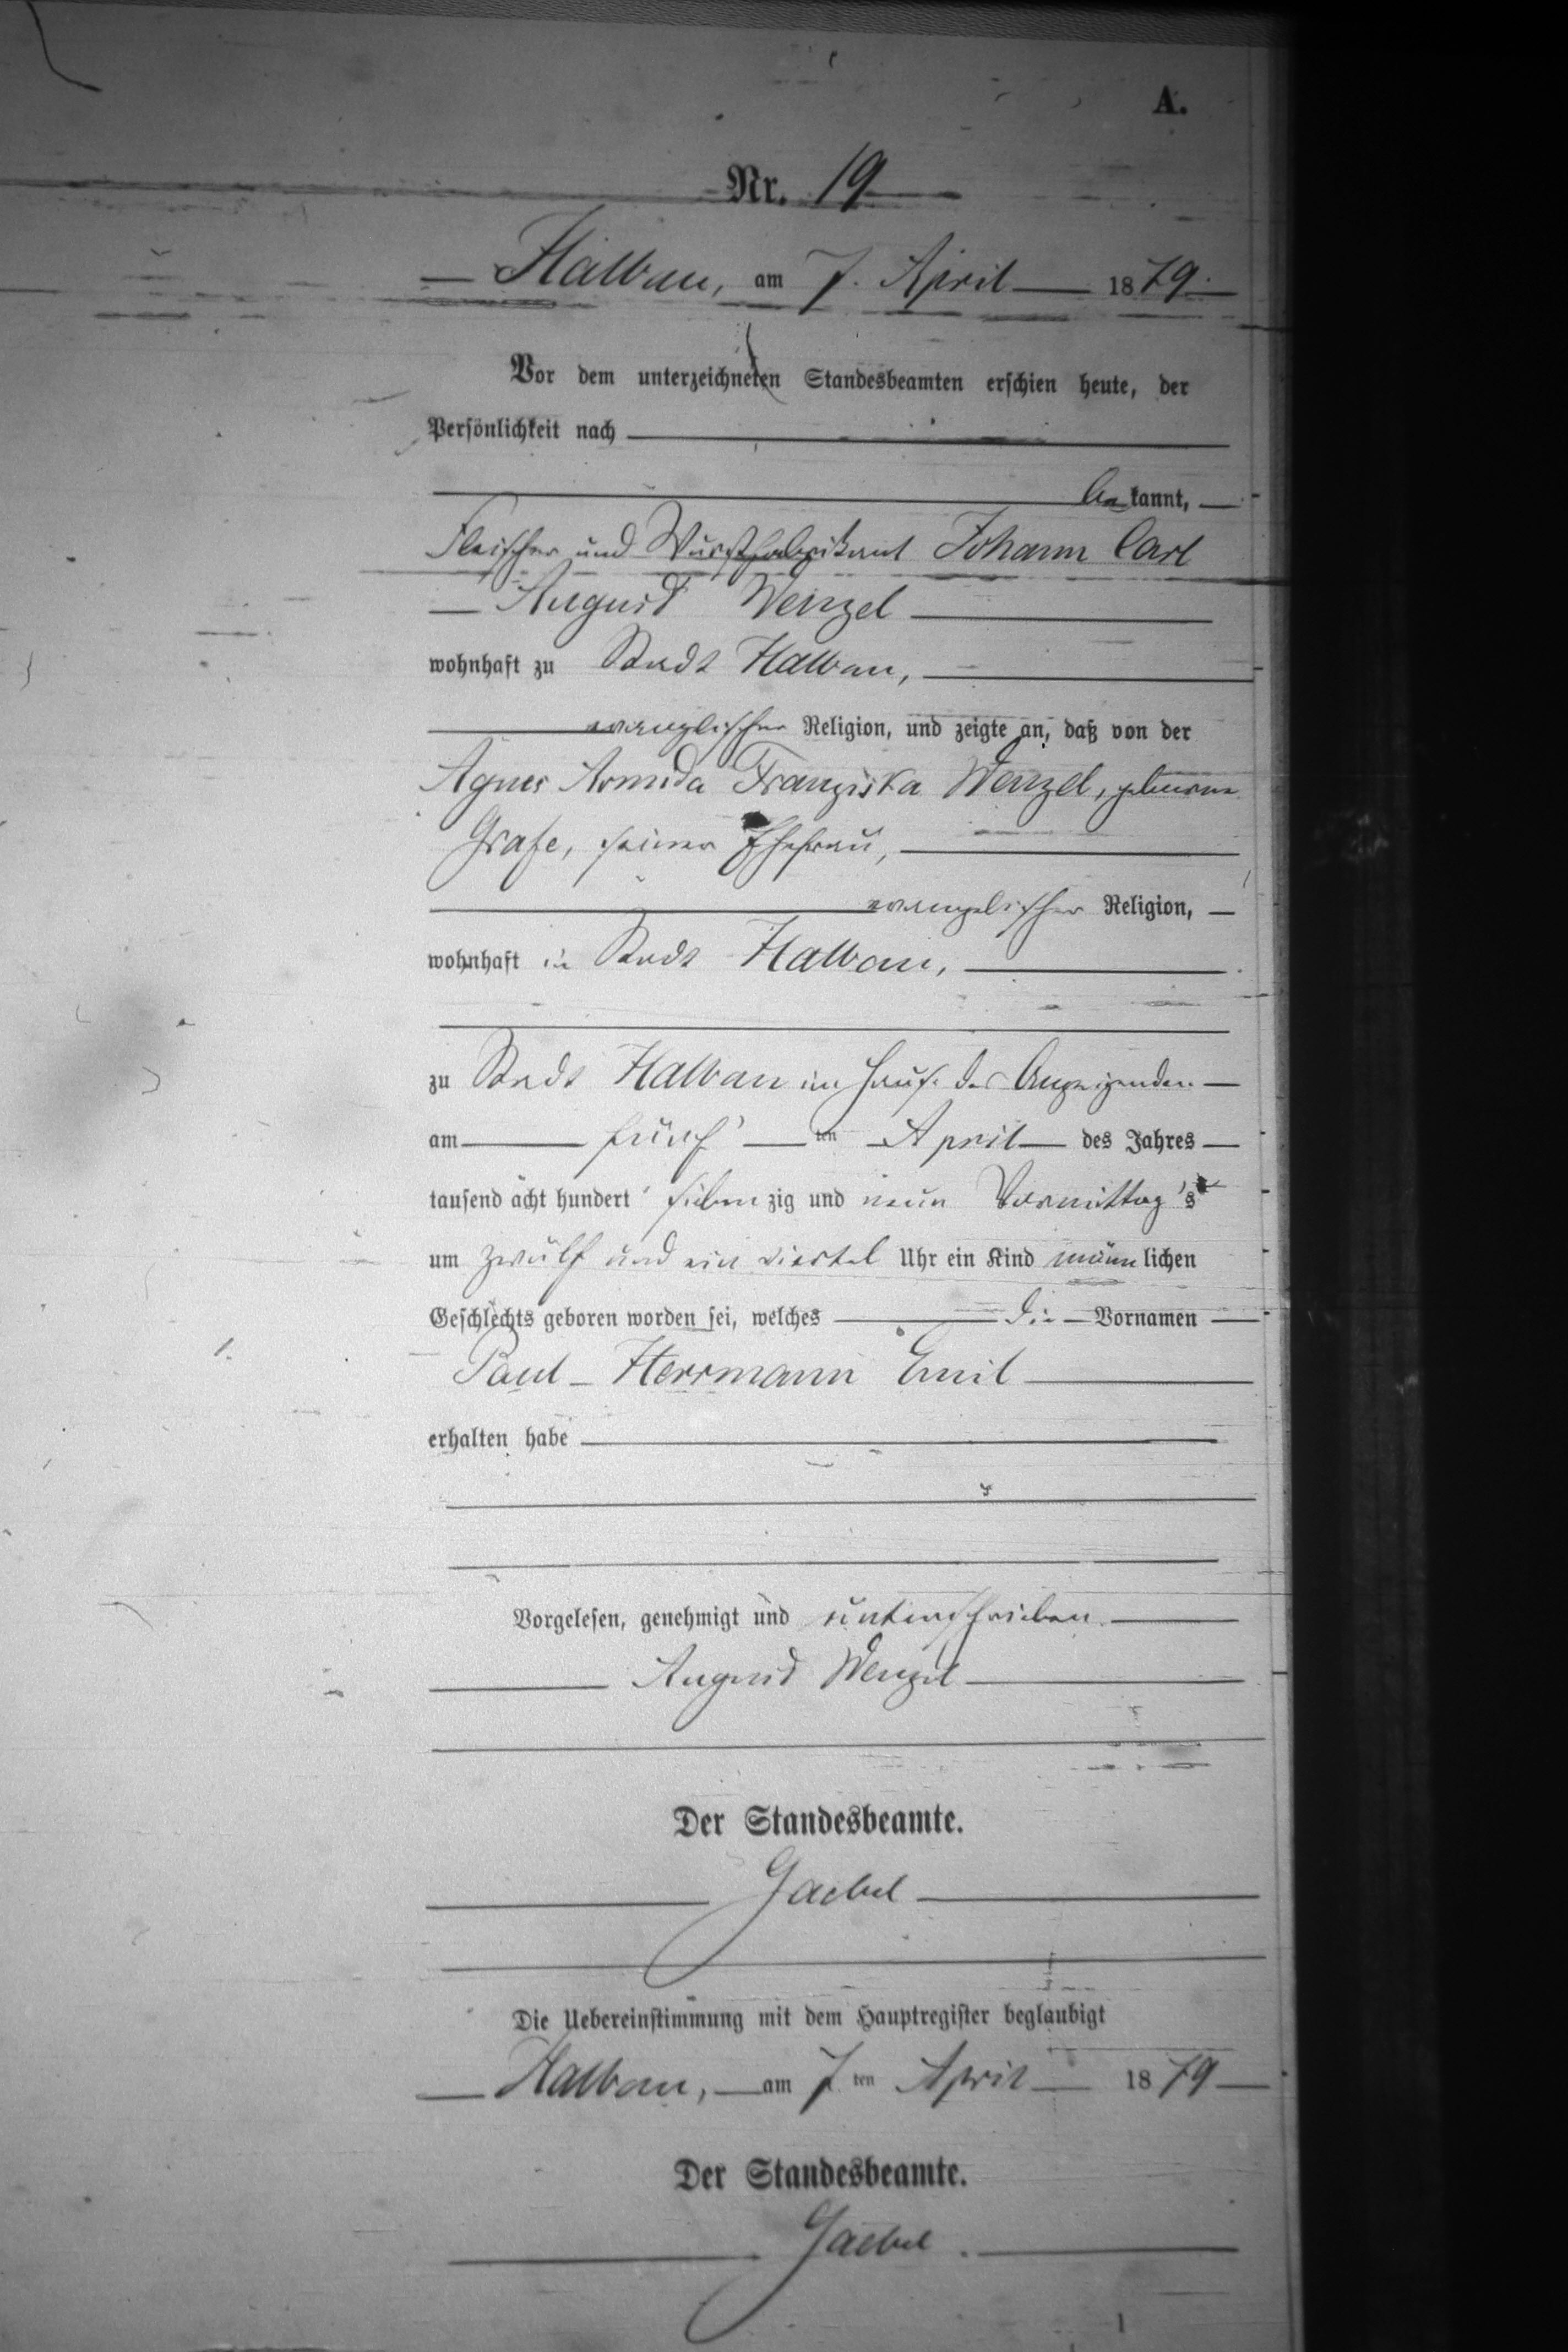 A.
Nr. 19
Halbau, am 7. April 1879.
Vor dem unterzeichneten Standesbeamten erschien heute, der
Persönlichkeit nach
bekannt,
Fleischer und Wurstfabrikant Johann Carl
August Wenzel
wohnhaft zu Stadt Halbau,
evangelischer Religion, und zeigte an, daß von der
Agnes Armida Franziska Wenzel, geborene
Grafe, seiner Ehefrau,
evangelischer Religion,
wohnhaft in Stadt Halbau,
zu Stadt Halbau im Hause des Anzeigenden
am fünften April des Jahres
tausend acht hundert siebenzig und neun Vormittags
um zwölf und ein viertel Uhr ein Kind männlichen
Geschlechts geboren worden sei, welches die Vornamen
Paul Herrmann Emil
erhalten habe
Vorgelesen, genehmigt und unterschrieben.
August Wenzel
Der Standesbeamte.
Gaebel
Die Uebereinstimmung mit dem Hauptregister beglaubigt
Halbau, am 7ten April 1879
Der Standesbeamte.
Gaebel.